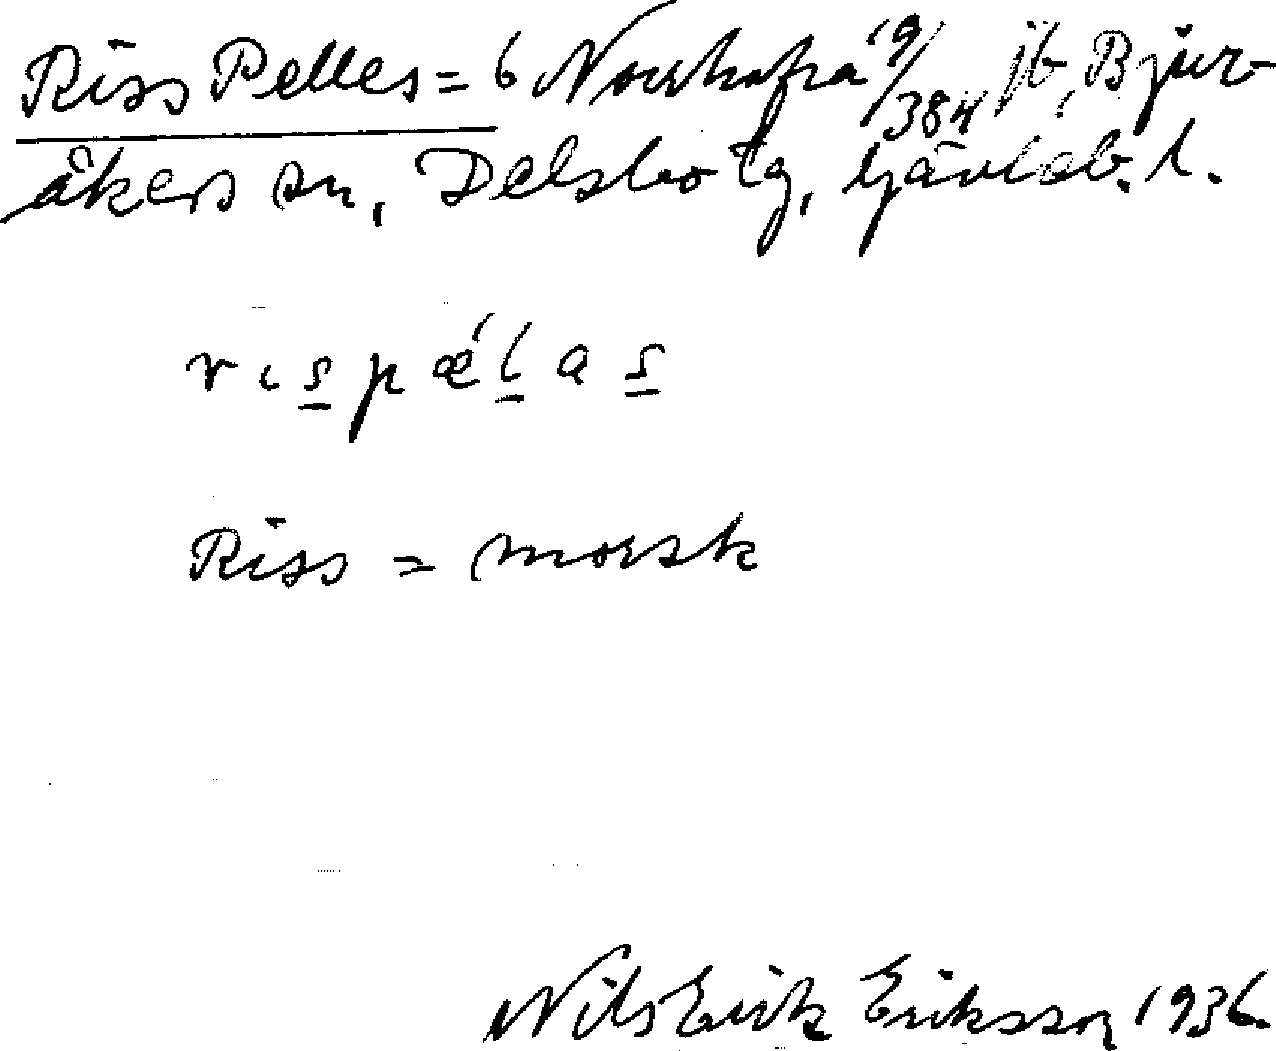 Riss Pelles = 6 Norrhavra 19/384 jb, Bjur-
åkers sn, Delsbo tg, Gävleb. l.
r ι s p ǽ l a s
Riss = morsk
Nils Erik Eriksson 1936.